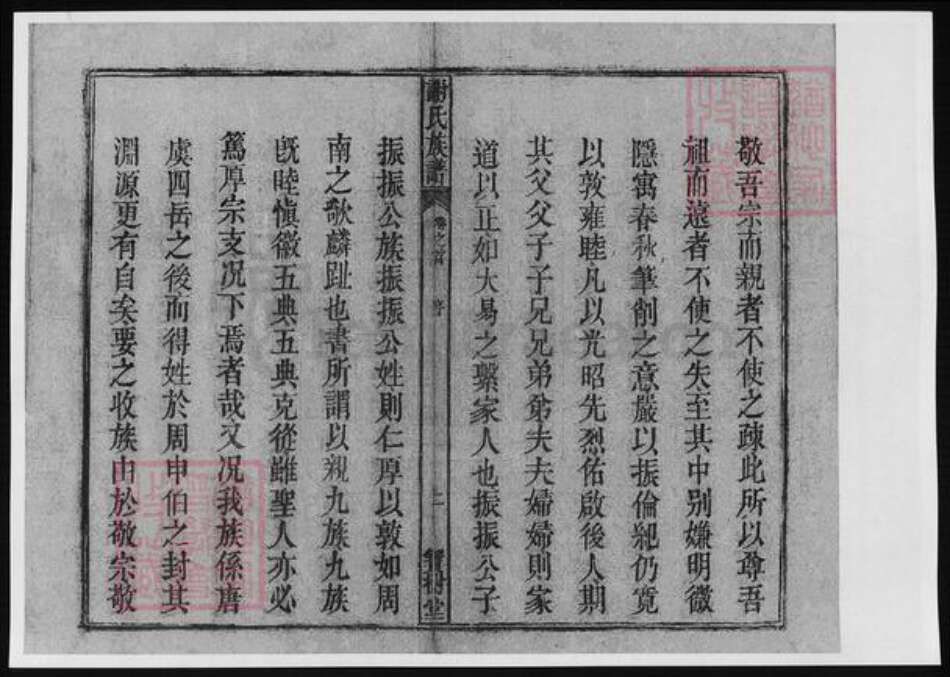 敬吾宗而親者不使之疎此所以尊吾
祖而遠者不使之失至其中别嫌明微
隱寓春秋筆削之意嚴以振倫紀仍寬
以敦雍睦凡以光昭先烈佑啟後人期
其父父子子兄兄弟弟夫夫婦婦則家
道以正如大易之繫家人也振振公子
謝氏族譜
卷之首
序
上
寶樹堂
振振公族振振公姓則仁厚以敦如周
南之歌麟趾也書所謂以親九族九族
旣睦愼徽五典五典克從雖聖人亦必
篤厚宗支况下焉者哉又况我族係唐
虞四岳之後而得姓於周申伯之封其
淵源更有自矣要之收族由於敬宗敬